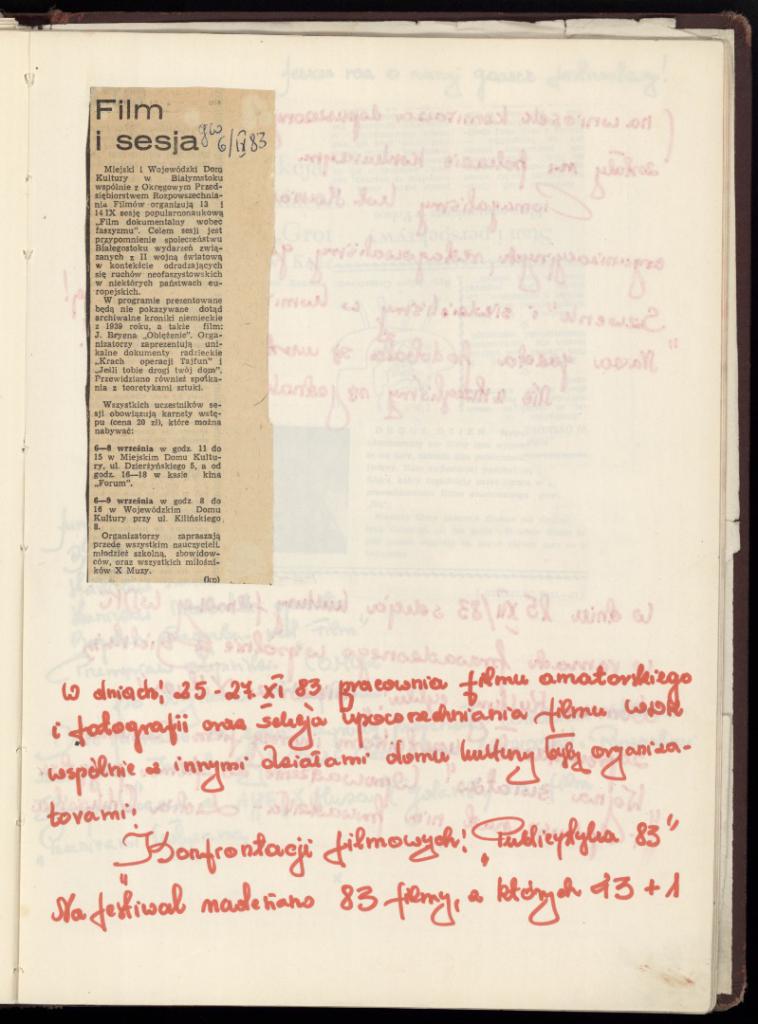 Film
i sesja
6/IX 83
Miejski i Wojewódzki Dom
Kultury w Białymstoku
wspólnie z Okręgowym Przed-
siębiorstwem Rozpowszechnia-
nia Filmów organizują 13 i
14 IX sesję popularnonaukową
„Film dokumentalny wobec
faszyzmu". Celem sesji jest
przypomnienie społeczeństwu
Białegostoku wydarzeń zwią-
zanych z II wojną światową
w kontekście odradzających
się ruchów neofaszystowskich
w niektórych państwach eu-
ropejskich.
W programie prezentowane
będą nie pokazywane dotąd
archiwalne kroniki niemieckie
z 1939 roku, a także film:
J. Bryena „Oblężenie". Orga-
nizatorzy zaprezentują uni-
kalne dokumenty radzieckie
„Krach operacji Tajfun" i
„Jeśli tobie drogi twój dom".
Przewidziano również spotka-
nia z teoretykami sztuki.
Wszystkich uczestników se-
sji obowiązują karnety wstę-
pu (cena 20 zł), które można
nabywać:
6—8 września w godz. 11 do
15 w Miejskim Domu Kultu-
ry, ul. Dzierżyńskiego 5, a od
godz. 16—18 w kasie kina
„Forum".
6—9 września w godz. 8 do
16 w Wojewódzkim Domu
Kultury przy ul. Kilińskiego
8.
Organizatorzy zapraszają
przede wszystkim nauczycieli,
młodzież szkolną, zbowidow-
ców, oraz wszystkich miłośni-
ków X Muzy.
(kp)
W dniach: 25-27 XI 83 pracownia filmu amatorskiego
i fotografii oraz sekcja upowszechniania filmu WDK
wspólnie z innymi działami domu kultury były organiza-
torami:
„Konfrontacji filmowych: „Publicystyka 83"
Na festiwal nadesłano 83 filmy, z których 43 + 1